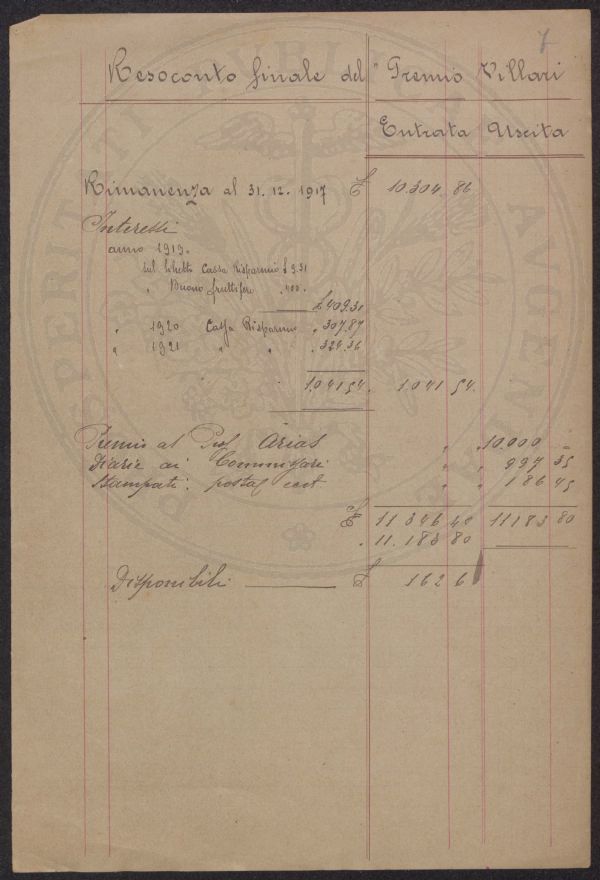 7
Resoconto finale del Premio Villari
Entrata Uscita
Rimanenza al 31. 12. 1917 £ 10.304. 86
Interessi
anno 1919.
sul libretto Cassa Risparmio £ 9.31
" Buono fruttifero " 400.
£ 409.31
" 1920 Cassa Risparmio " 307.87
" 1921 " " " 324.36
1.041 54. 1.041 54.
Premio al Prof. Arias " " 10.000 –
Diarie ai Commissari " " 997 35
Stampati: postal ecct " " 186 45
£ 11 346 40 11183 80
" 11. 183 80
Disponibili £ 162 6
PROSPERITATI PUBLICAE AUGENDAE